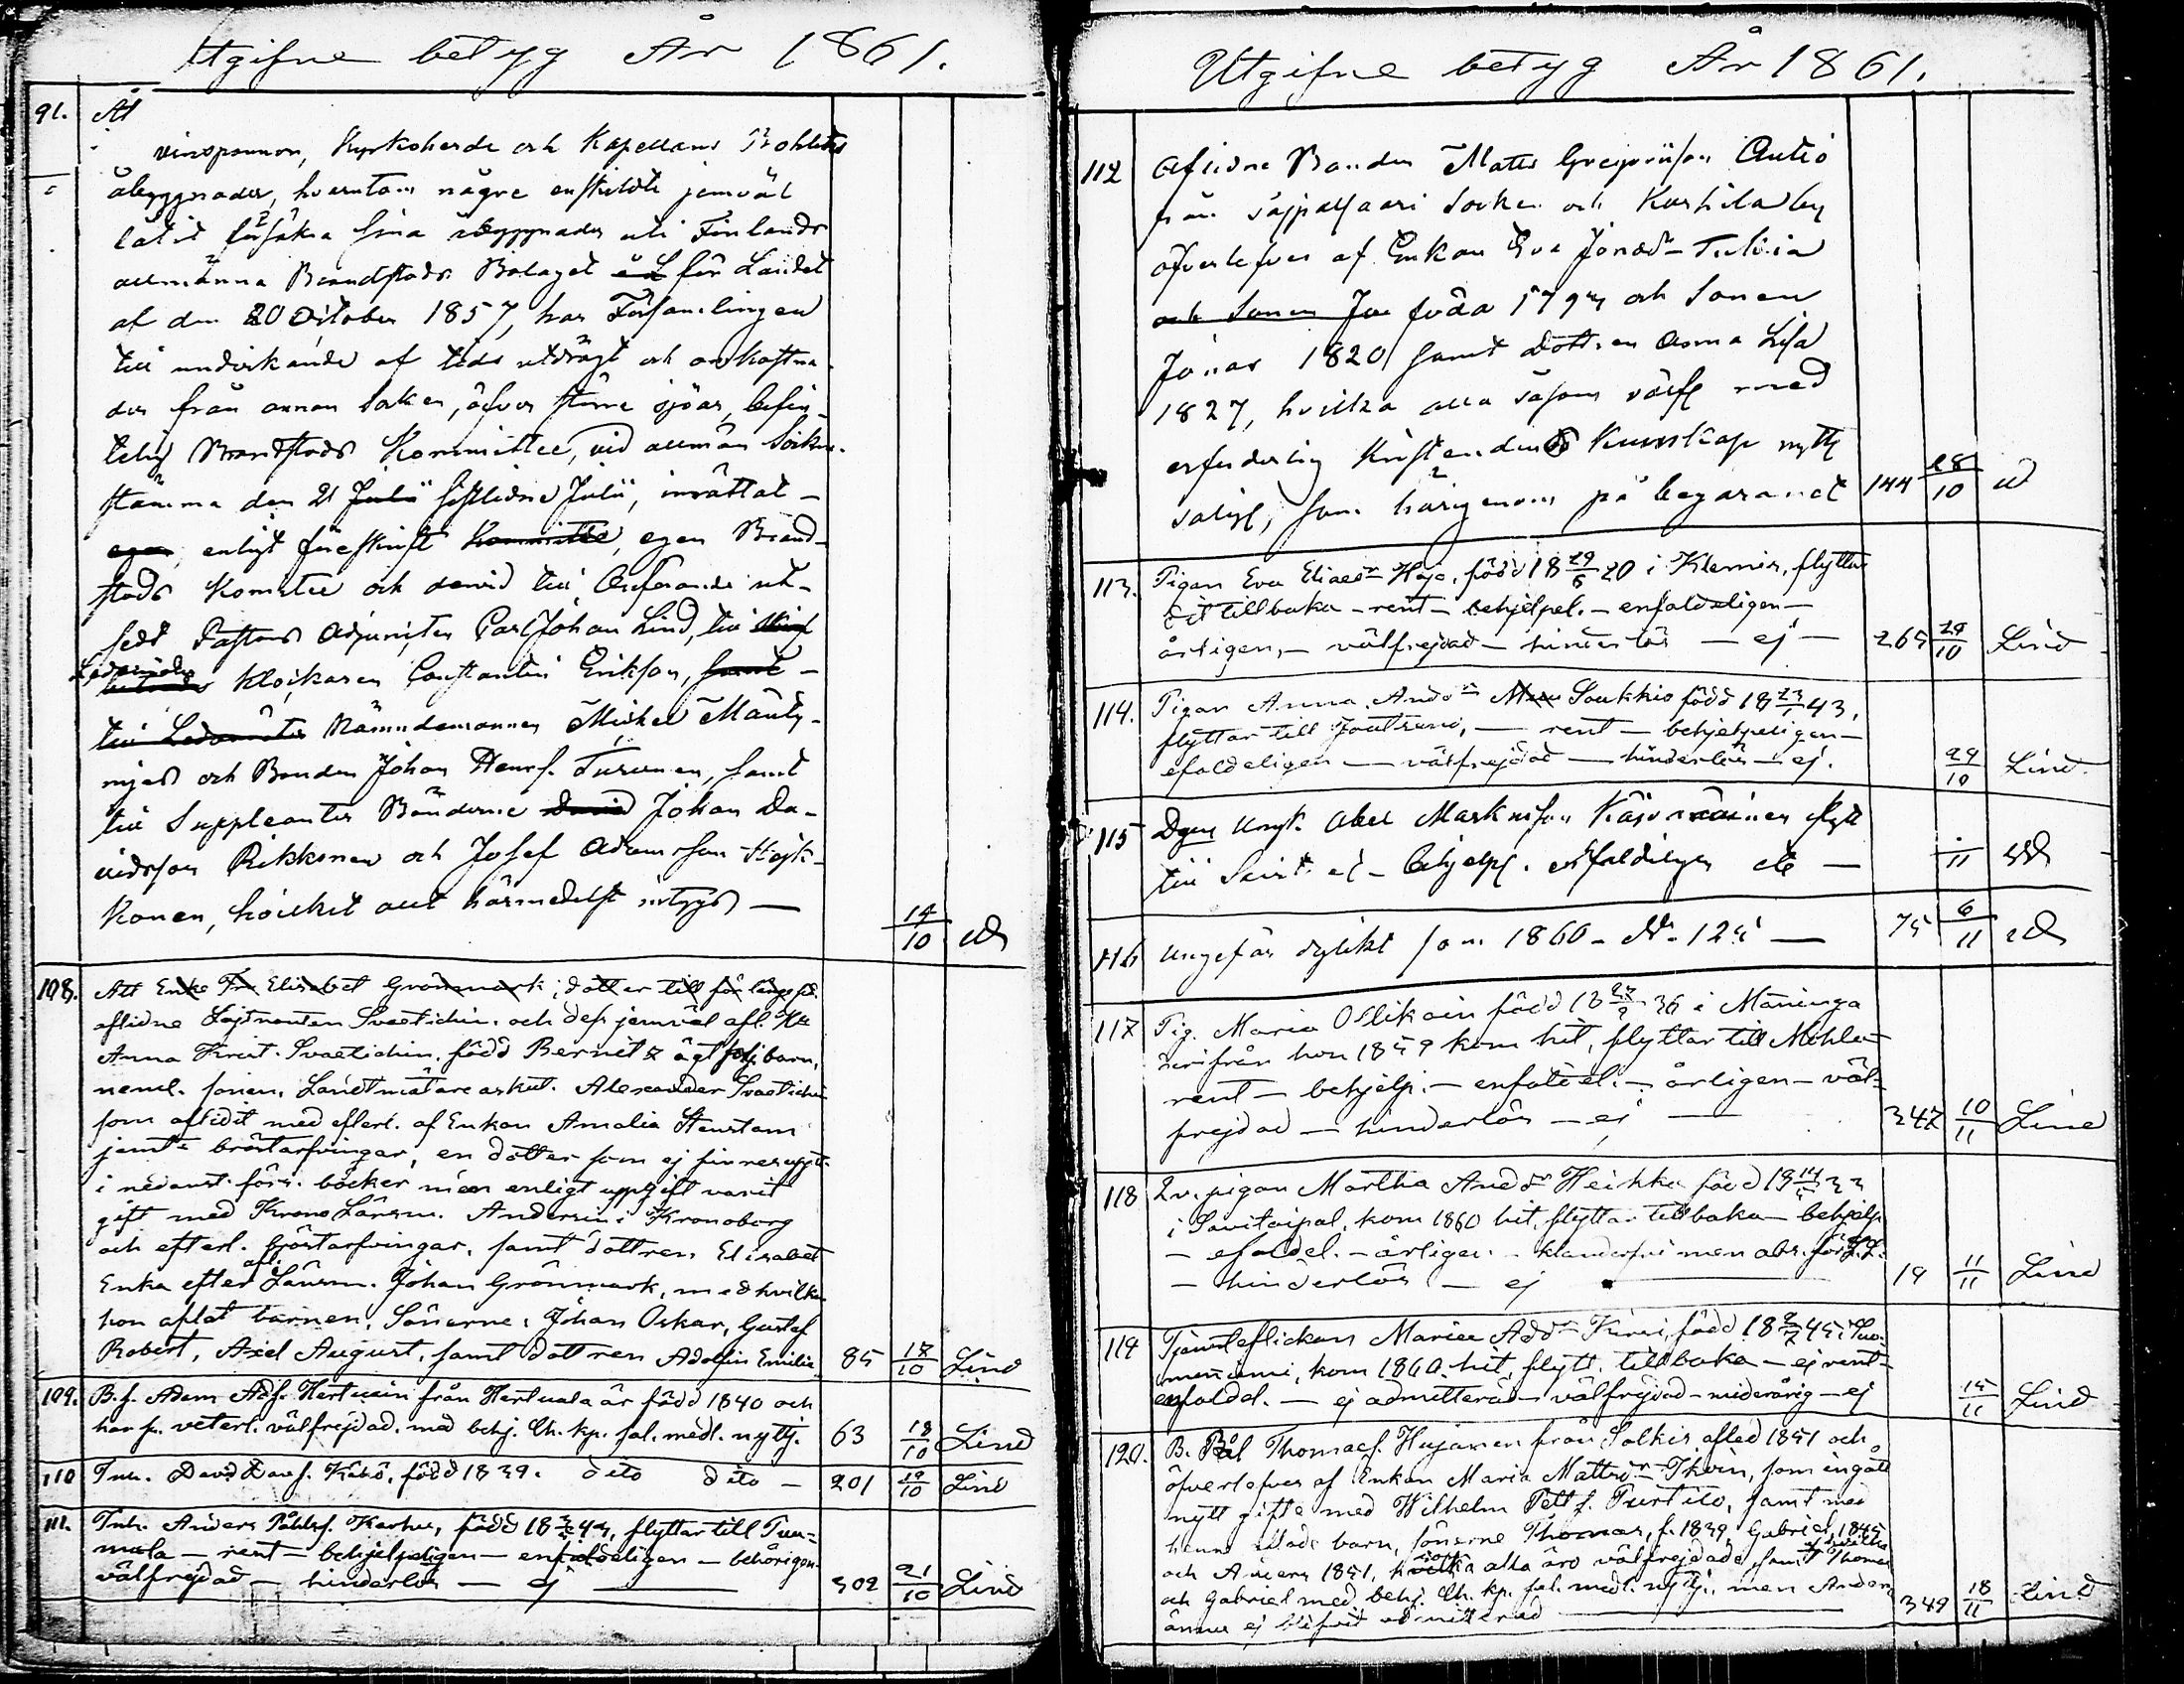 Utgifne betyg År 1861.
91. At
Kyrkoherde och Kapellans Bohlets
åbyggnader, hvarutom några enskilda jemväl
låtit försäkra sina åbyggnader uti Finlands
allmänna Brandstods Bolaget för Landet
af den 20 October 1857, har Församlingen
till undvikande af tids utdrägt och omkostna-
der från annan Socken, öfver större sjöar, befin-
telig Brandstods Kommittee, vid allmän Socken-
stämma den 21 Julii sistlidne Julii, inrättat
egen, enligt föreskrift Kommittee, egen Brand-
stods Komitee och dervid till Ordförande ut-
sedt Pastors Adjuncten Carl Johan Lind, till
Ledamöter Klockaren Constantin Erikson, samt
till Ledamöter Nämndemannen Michel Mänty-
och Bonden Johan Henrs. Turunen, samt
till Suppleanter Bönderne David Johan Da-
vidsson Rikkonen och Josef Adamsson Höjk-
konen, hvilket allt härmedelst intygas —
14/10
108. Att Enke Fru Elisabet Grönmark, dotter till för länge sed.
aflidne Löjtnanten Svaetichin och dess jemväl afl. Fru
Anna Krist. Svaetichin född Bernitz ägt följ. barn,
neml. sonen, Landtmätare Alexander Svaetichin
som aflidit med efterl. af Enkan Amalia Stenstam
jemte bröstarfvingar, en dotter som ej finnes uppt.
i nedanst. förs. böcker men enligt uppgift varit
gift med Krono Länsm. Andersin i Kronoborg
och efterl. bröstarfvingar, samt dottren Elisabet
Enka efter afl. Länsm. Johan Grönmark, med hvilken
hon aflat barnen, Sönerne, Johan Oskar, Gustaf
Robert, Axel August, samt dottren Adolfin Emilia 85 17/10 Lind
109. B.s. Adam Ads. Hertuain från Hertuala är född 1840 och
har s. veterl. välfrejdad med behj. Ch. kp. sal. medl. nyttj. 63 18/10 Lind
110 Inh. David Kähö, född 1839. dito dito — 201 19/10 Lind
111. Inh. Anders Påhls. Karhu, född flyttar till
— rent — behjelpeligen — enfaldeligen — behörigen
välfrejdad — hinderlös — ej — 302 21/10 Lind
Utgifne betyg År 1861.
112 Aflidne Bonden Matts Gregoriison Autio
från Säppälsaari Socken och Kurhila by
öfverlefves af Enkan Eva Jonasdr Tulkia
och Sonen Jo födda 1794 och Sonen
Jonas 1820 samt dottren Anna Lisa
1827, hvilka alla såsom välfr. med
erforderlig Kristendoms Kunskap nyttj.
salig., som härigenom på begäran 144 28/10
113. Pigan Eva Eliaedr Hoja, född 18 29/6 20 i Klemis, flyttar
dit tillbaka — rent — behjelpel. — enfaldeligen —
årligen, — välfrejdad — hinderlös — ej — 265 29/10 Lind
114. Pigan Anna Andsdr Soukkio född 18 43,
flyttar till Joutseno, — rent — behjelpeligen —
efaldeligen — välfrejdad — hinderlös — ej. 29/10 Lind.
115 Abel Markusson flytt
till — behjelpl. enfaldeligen etc — /11
116 Ungefär dylikt som 1860 — No. 125 — 75 6/11
117 Pig. Maria född 36 i Maninga
derifrån hon 1859 kom hit, flyttar till Mohla
rent — behjelp. — enfaldel. — årligen — väl-
frejdad — hinderlös — ej — 347 10/11 Lind
118 pigan Martha Andsdr Heikka född 33
i Savitaipal, kom 1860 hit, flyttar tillbaka — behjelp.
— efaldel. — årligen — men abs. för L.L.
— hinderlös — ej — 19 11/11 Lind
119 Tjensteflickan Maria Adsdr Kirsi, född 18 45 i Suo-
menniemi, kom 1860 hit, flytt. tillbaka — ej rent —
enfaldel. — ej admitterad — välfrejdad — minderårig — ej 15/11 Lind
120. B. Pål Thomaes. Hujanen från Solkis afled 1851 och
öfverlefves af Enkan Maria Mattsdr Ikoin, som ingått
nytt gifte med Wilhelm Purtilo, samt med
henne aflade barn, sönerne Thomas, f. 1839, Gabriel, 1845
och Anders 1851, hvilka alla äro välfrejdade, samt Thomas
och Gabriel med behj. Ch. kp. sal. medl. nyttj. men Anders
ännu ej blifvit admitterad — 349 18/11 Lind